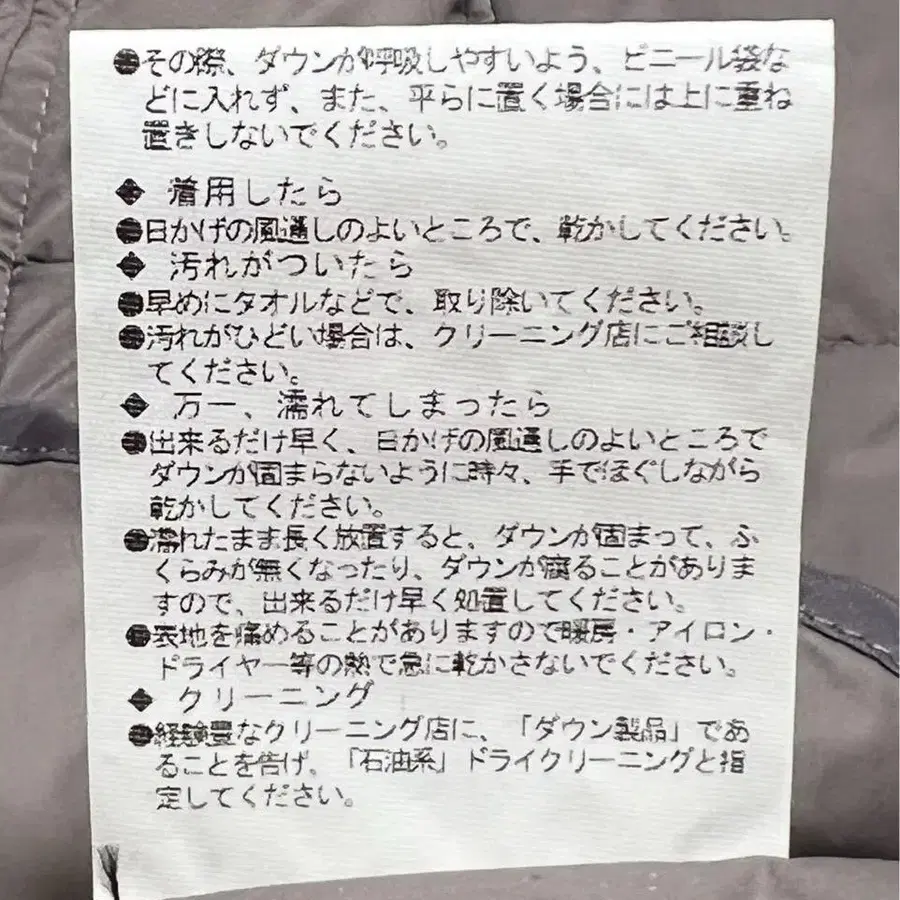 ●その際、ダウンが呼吸しやすいよう、ビニール袋な
どに入れず、また、平らに置く場合には上に重ね
置きしないでください。
◆ 着用したら
●日かげの風通しのよいところで、乾かしてください。
◆ 汚れがついたら
●早めにタオルなどで、取り除いてください。
●汚れがひどい場合は、クリーニング店にご相談し
てください。
◆ 万一、濡れてしまったら
●出来るだけ早く、日かげの風通しのよいところで
ダウンが固まらないように時々、手でほぐしながら
乾かしてください。
●濡れたまま長く放置すると、ダウンが固まって、ふ
くらみが無くなったり、ダウンが腐ることがありま
すので、出来るだけ早く処置してください。
●表地を痛めることがありますので暖房・アイロン・
ドライヤー等の熱で急に乾かさないでください。
◆ クリーニング
●経験豊なクリーニング店に、「ダウン製品」であ
ることを告げ、「石油系」ドライクリーニングと指
定してください。